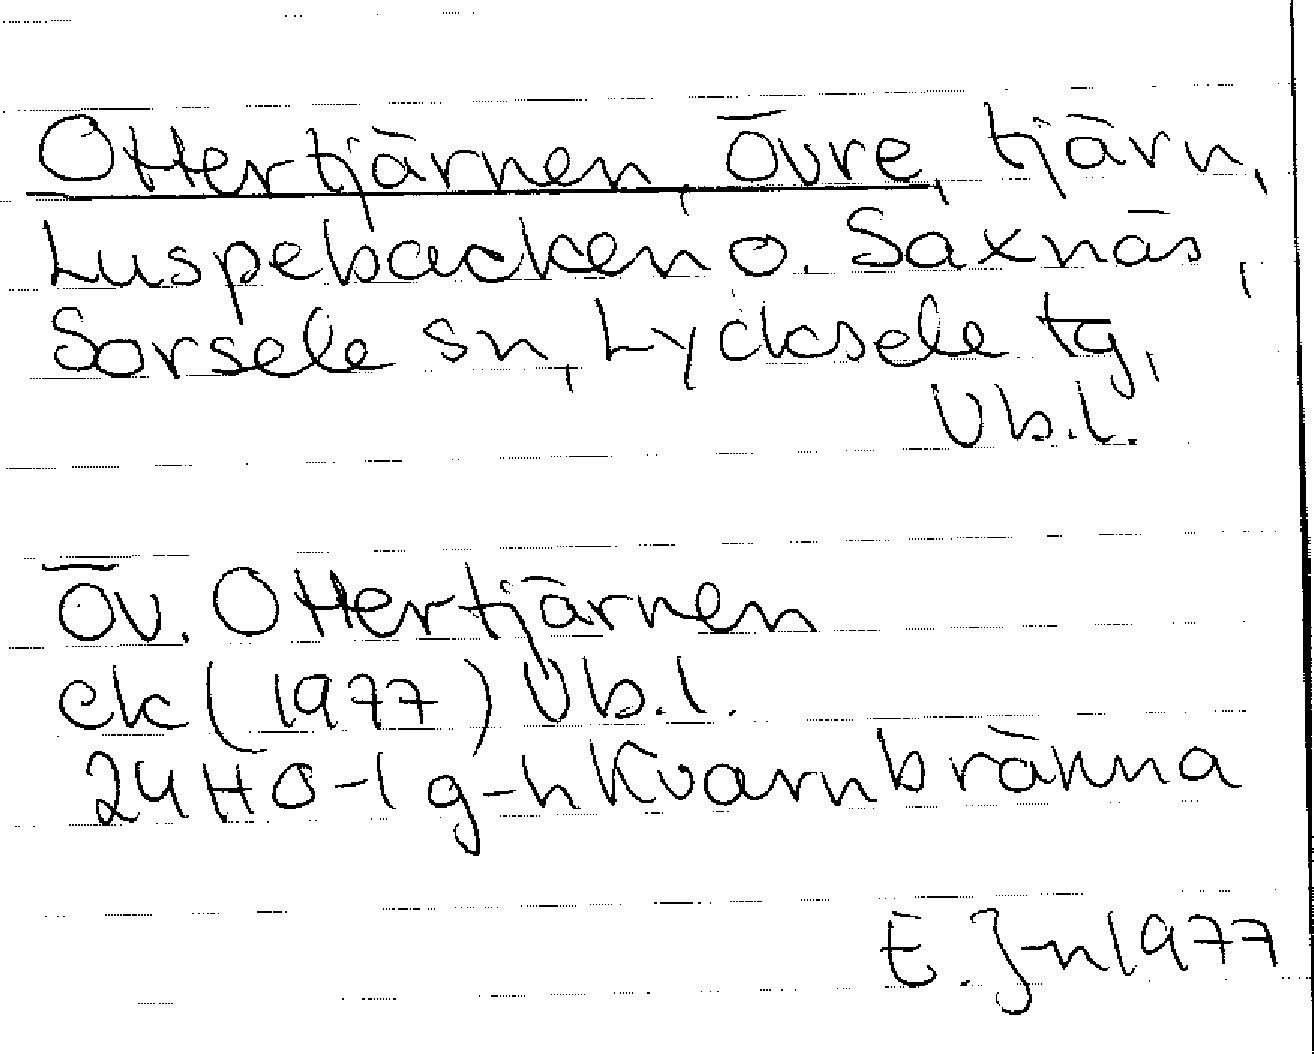 Ottertjärnen, Övre, tjärn,
Luspebacken o. Saxnäs,
Sorsele sn, Lycksele tg,
Vb.l.
Öv. Ottertjärnen
ek (1977) Vb.l.
24 H 0-1 g-h Kvarnbränna
E. J-n 1977